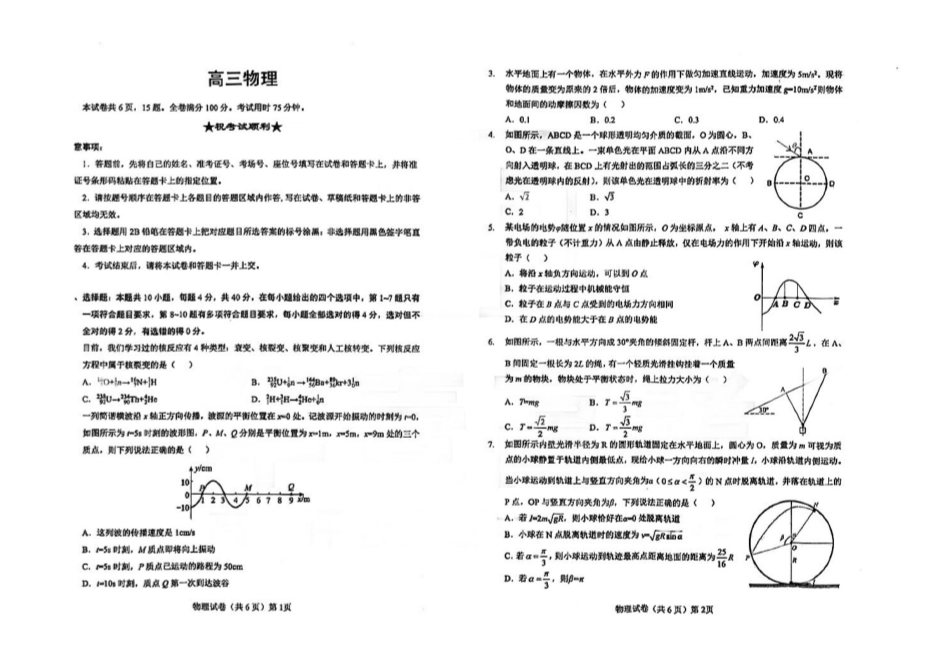 高三物理
本试卷共 6 页，15 题。全卷满分 100 分。考试用时 75 分钟。
★祝考试顺利★
意事项：
1．答题前，先将自己的姓名、准考证号、考场号、座位号填写在试卷和答题卡上，并将准
证号条形码粘贴在答题卡上的指定位置。
2．请按题号顺序在答题卡上各题目的答题区域内作答，写在试卷、草稿纸和答题卡上的非答
区域均无效。
3．选择题用 2B 铅笔在答题卡上把对应题目所选答案的标号涂黑；非选择题用黑色签字笔直
答在答题卡上对应的答题区域内。
4．考试结束后，请将本试卷和答题卡一并上交。
、选择题：本题共 10 小题，每题 4 分，共 40 分。在每小题给出的四个选项中，第 1~7 题只有
一项符合题目要求，第 8~10 题有多项符合题目要求，每小题全部选对的得 4 分，选对但不
全对的得 2 分，有选错的得 0 分。
目前，我们学习过的核反应有 4 种类型：衰变、核裂变、核聚变和人工核转变。下列核反应
方程中属于核裂变的是（ ）
A．
B．
C．
D．
一列简谐横波沿 x 轴正方向传播，波源的平衡位置在 x=0 处。记波源开始振动的时刻为 t=0，
如图所示为 t=5s 时刻的波形图，P、M、Q 分别是平衡位置为 x=1m，x=5m，x=9m 处的三个
质点，则下列说法正确的是（ ）
y/cm
10
0
-10
P M Q
1 2 3 4 5 6 7 8 9 x/m
A．这列波的传播速度是 1cm/s
B．t=5s 时刻，M 质点即将向上振动
C．t=5s 时刻，P 质点已运动的路程为 50cm
D．t=10s 时刻，质点 Q 第一次到达波谷
物理试卷（共 6 页）第 1页
3．水平地面上有一个物体，在水平外力 F 的作用下做匀加速直线运动，加速度为 5m/s²，现将
物体的质量变为原来的 2 倍后，物体的加速度变为 1m/s²，已知重力加速度 g=10m/s²则物体
和地面间的动摩擦因数为（ ）
A．0.1 B．0.2 C．0.3 D．0.4
4．如图所示，ABCD 是一个球形透明均匀介质的截面，O 为圆心，B、
O、D 在一条直线上。一束单色光在平面 ABCD 内从 A 点沿不同方
向射入透明球，在 BCD 上有光射出的范围占弧长的三分之二（不考
虑光在透明球内的反射），则该单色光在透明球中的折射率为（ ）
A．√2 B．√3
C．2 D．3
A
B O D
C
5．某电场的电势φ随位置 x 的情况如图所示，O 为坐标原点， x 轴上有 A、B、C、D 四点，一
带负电的粒子（不计重力）从 A 点由静止释放，仅在电场力的作用下开始沿 x 轴运动，则该
粒子（ ）
A．将沿 x 轴负方向运动，可以到 O 点
B．粒子在运动过程中机械能守恒
C．粒子在 B 点与 C 点受到的电场力方向相同
D．在 D 点的电势能大于在 B 点的电势能
φ
O A B C D x
6．如图所示，一根与水平方向成 30°夹角的倾斜固定杆，杆上 A、B 两点间距离2√3/3 L，在 A、
B 间固定一根长为 2L 的绳，有一个轻质光滑挂钩挂着一个质量
为 m 的物块。物块处于平衡状态时，绳上拉力大小为（ ）
A．T=mg B．T=√3/3 mg
C．T=√2/2 mg D．T=√3/2 mg
B
A
30°
7．如图所示内壁光滑半径为 R 的圆形轨道固定在水平地面上，圆心为 O，质量为 m 可视为质
点的小球静置于轨道内侧最低点，现给小球一方向向右的瞬时冲量 I，小球沿轨道内侧运动。
当小球运动到轨道上与竖直方向夹角为α（0≤α<π/2）的 N 点时脱离轨道，并落在轨道上的
P 点，OP 与竖直方向夹角为β，下列说法正确的是（ ）
A．若 I=2m√gR，则小球恰好在α=0 处脱离轨道
B．小球在 N 点脱离轨道时的速度为 v=√gRsinα
C．若α=π/3，则小球运动到轨迹最高点距离地面的距离为25/16 R
D．若α=π/3，则β=π
N
P
β
O
R
物理试卷（共 6 页）第 2页